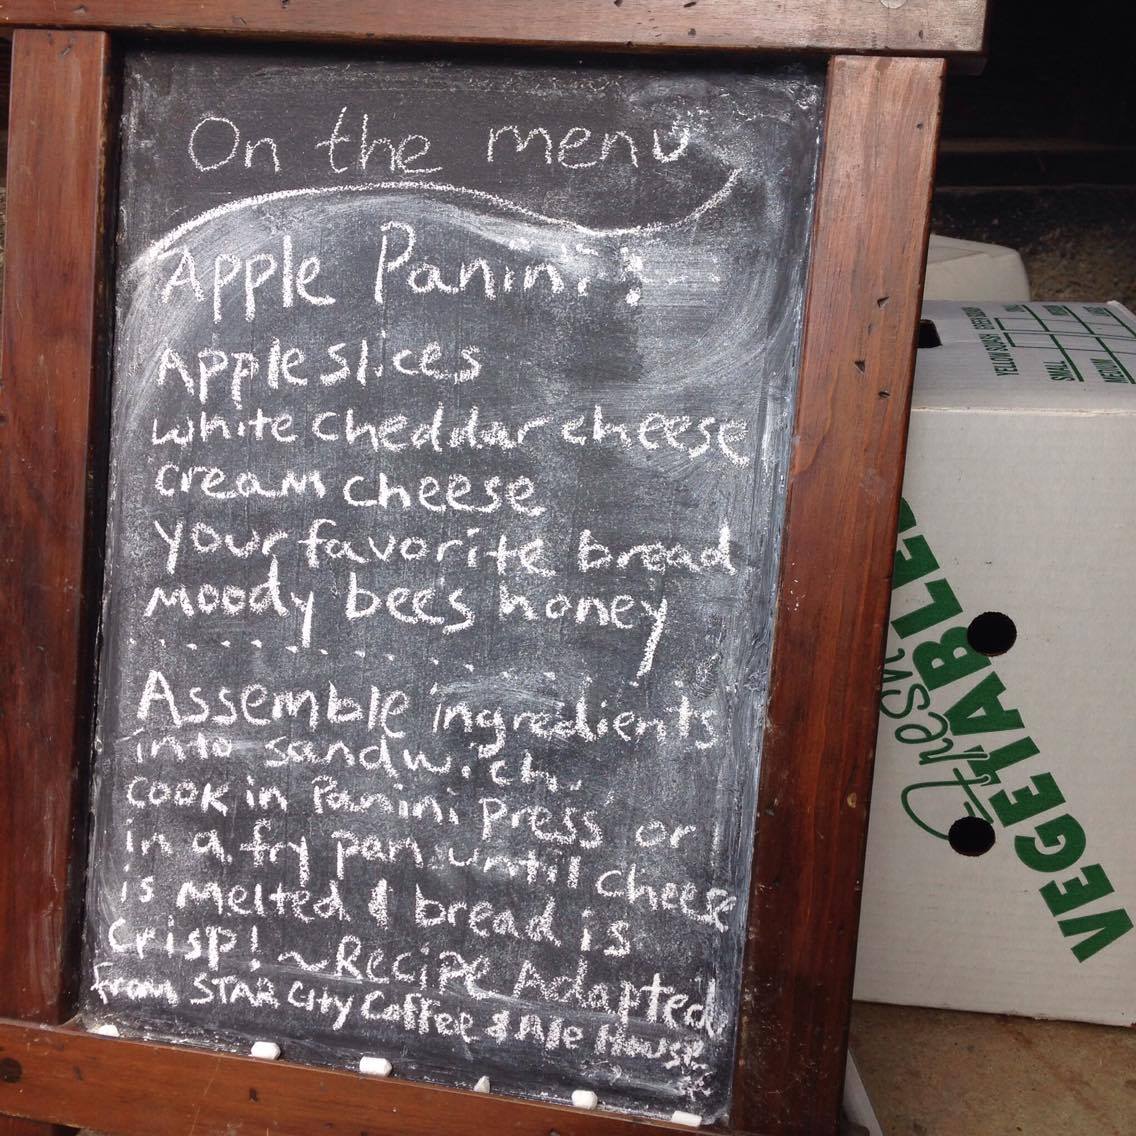 On the menu
Apple Panini!
Apple slices
white cheddar cheese
cream cheese
your favorite bread
moody bees honey
Assemble ingredients
into sandwich.
cook in Panini Press or
in a fry pan until cheese
is melted & bread is
crisp! ~Recipe Adapted
from STAR City Coffee & Ale House
Fresh
VEGETABLES
YELLOW SQUASH
SMALL
MEDIUM